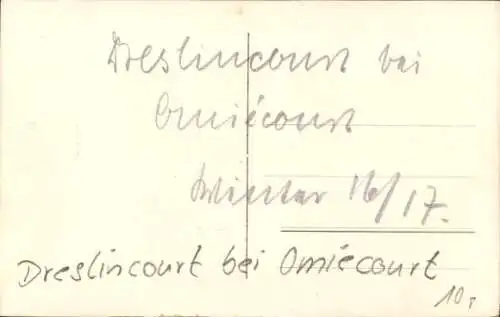 Dreslincourt bei
Omiécourt
Winter 16/17.
Dreslincourt bei Omiécourt
10,